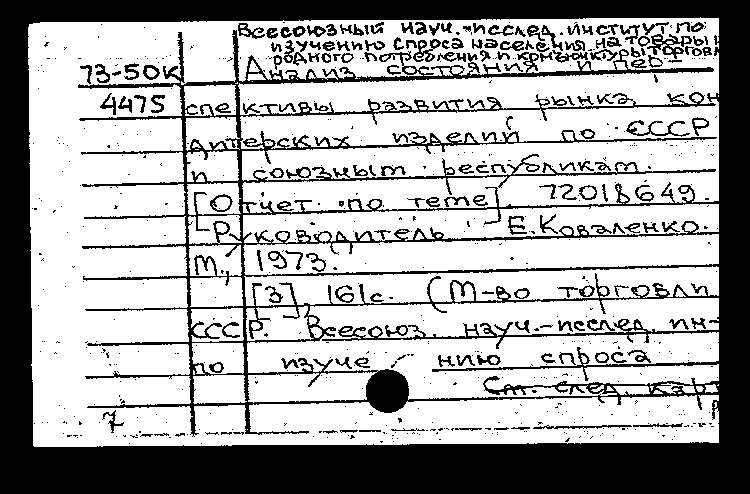 Всесоюзный науч.-исслед. институт по
изучению спроса населения на товары н
родного потребления и конъюнктуры торговл
73-50к Анализ состояния и пер-
4475 спективы развития рынка кон
дитерских изделий по СССР
и союзным республикам.
[Отчет по теме] 72018649.
Руководитель Е. Коваленко.
М., 1973.
[3], 161с. (М-во торговли
СССР. Всесоюз. науч.-исслед. ин-
по изучению спроса
См. след. карт
7